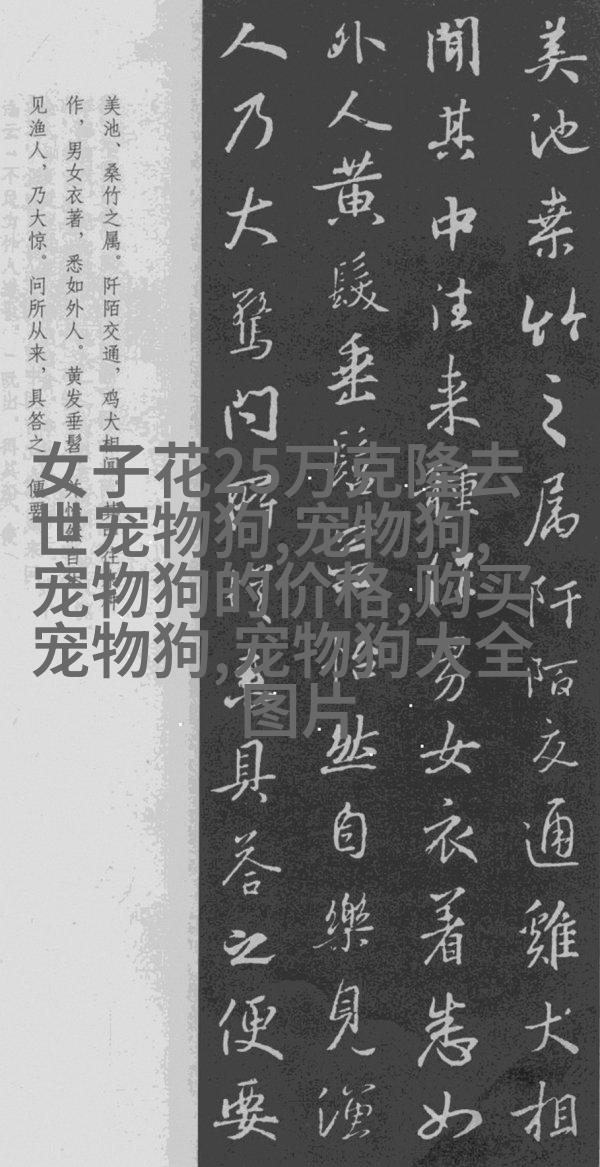 美池桒竹之属阡陌交通雞犬相
聞其中往来種作男女衣着悉如
外人黄髮垂髫並怡然自樂見漁
人乃大驚問所從来具荅之便要
美池、桑竹之属。阡陌交通，鸡犬相闻。其中往来种
作，男女衣著，悉如外人。黄发垂髫，并怡然自乐。
见渔人，乃大惊。问所从来，具答之。便要
女子花25万克隆去
世宠物狗,宠物狗,
宠物狗的价格,购买
宠物狗,宠物狗大全
图片